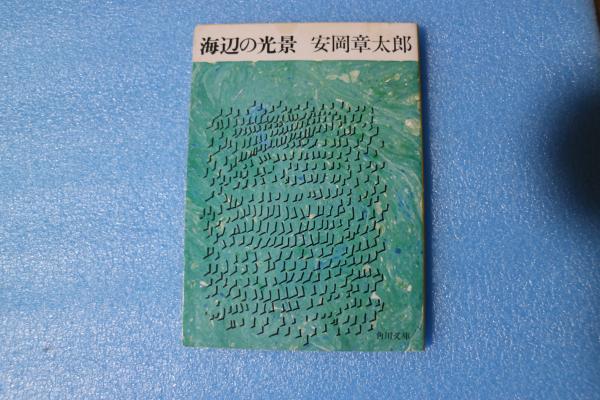 海辺の光景 安岡章太郎
角川文庫